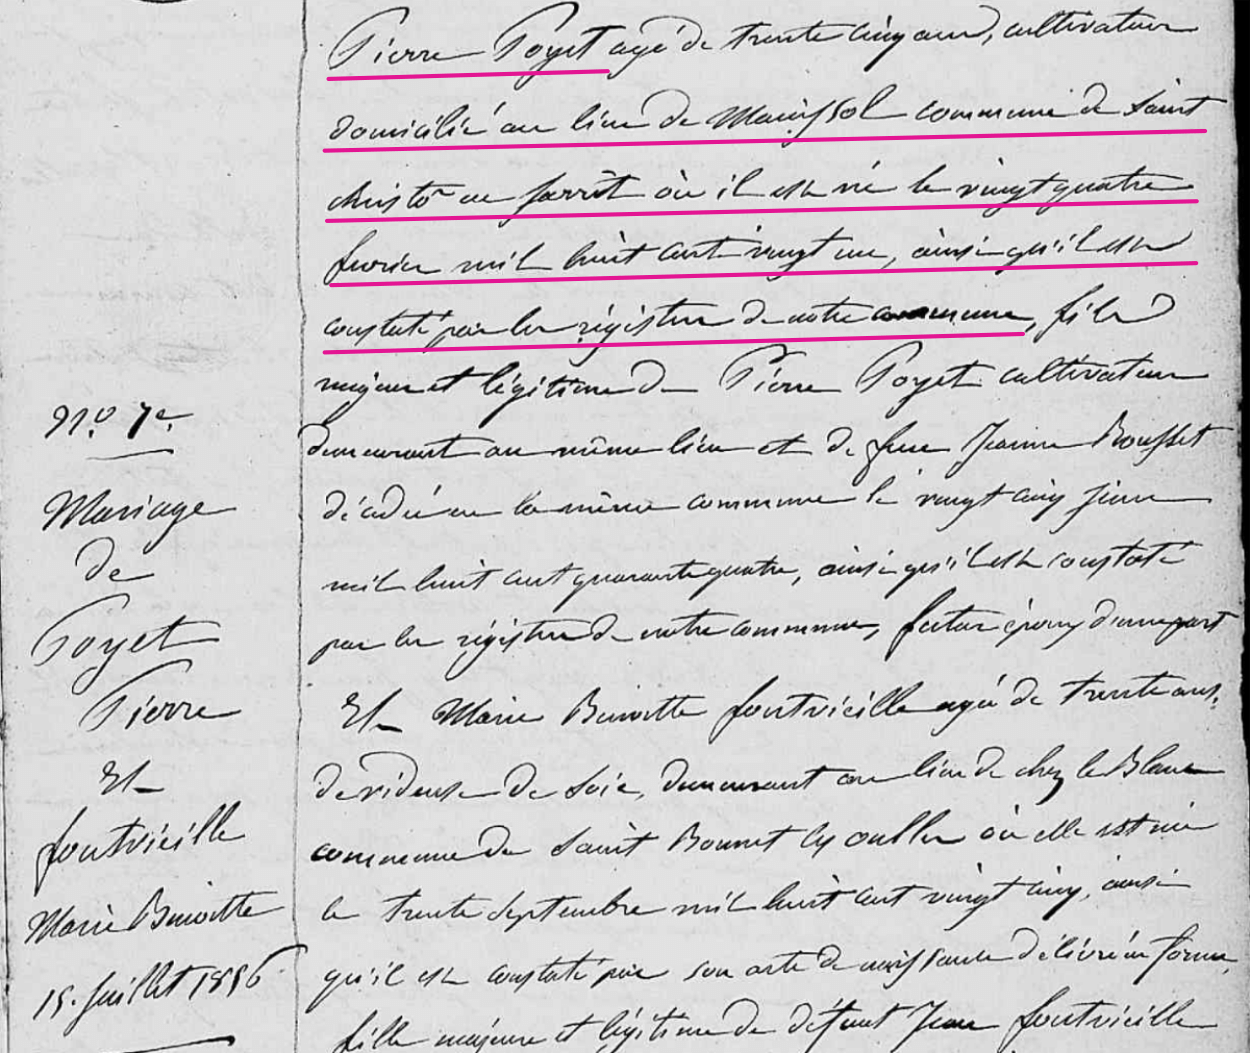 Pierre Poyet agé de trente cinq ans, cultivateur
domicilié au lieu de commune de Saint
christo en jarrêt où il est né le vingt quatre
fevrier mil huit cent vingt un, ainsi qu'il est
constaté par les régistres de notre commune, fils
majeur et légitime de Pierre Poyet cultivateur
demeurant au même lieu et de feue Jeanne Rousset
décédée en la même commune le vingt cinq
mil huit cent quarante quatre, ainsi qu'il est constaté
par les régistres de notre commune, futur époux d'une part
Et Marie Benoitte fontvieille agée de trente ans,
devideuse de soie, demeurant au lieu de chez le Blanc
commune de Saint Bonnet les oulles où elle est née
le trente Septembre mil huit cent vingt cinq, ainsi
qu'il est constaté par son acte de naissance délivré en forme,
fille majeure et légitime de défunt Jean fontvieille
N.º 7e.
Mariage
de
Poyet
Pierre
Et
fontvieille
Marie Benoitte
15. Juillet 1856